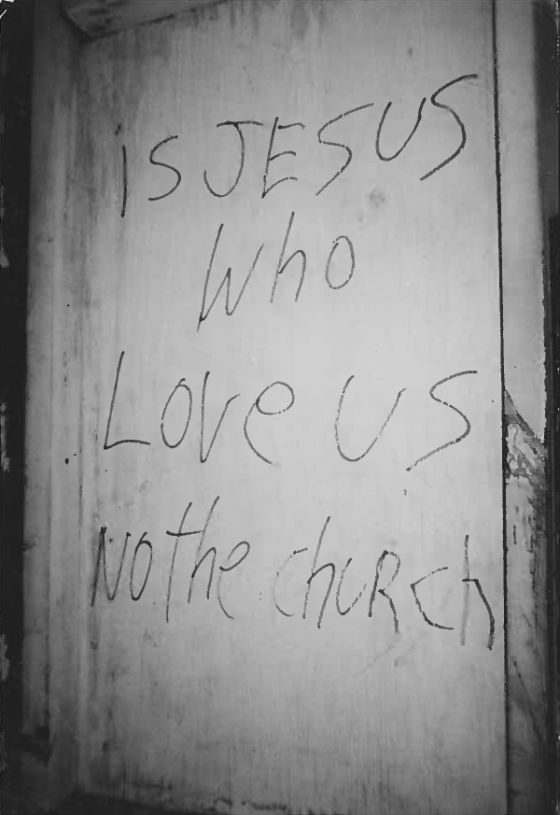 is JESUS
Who
Love US
No the chURch